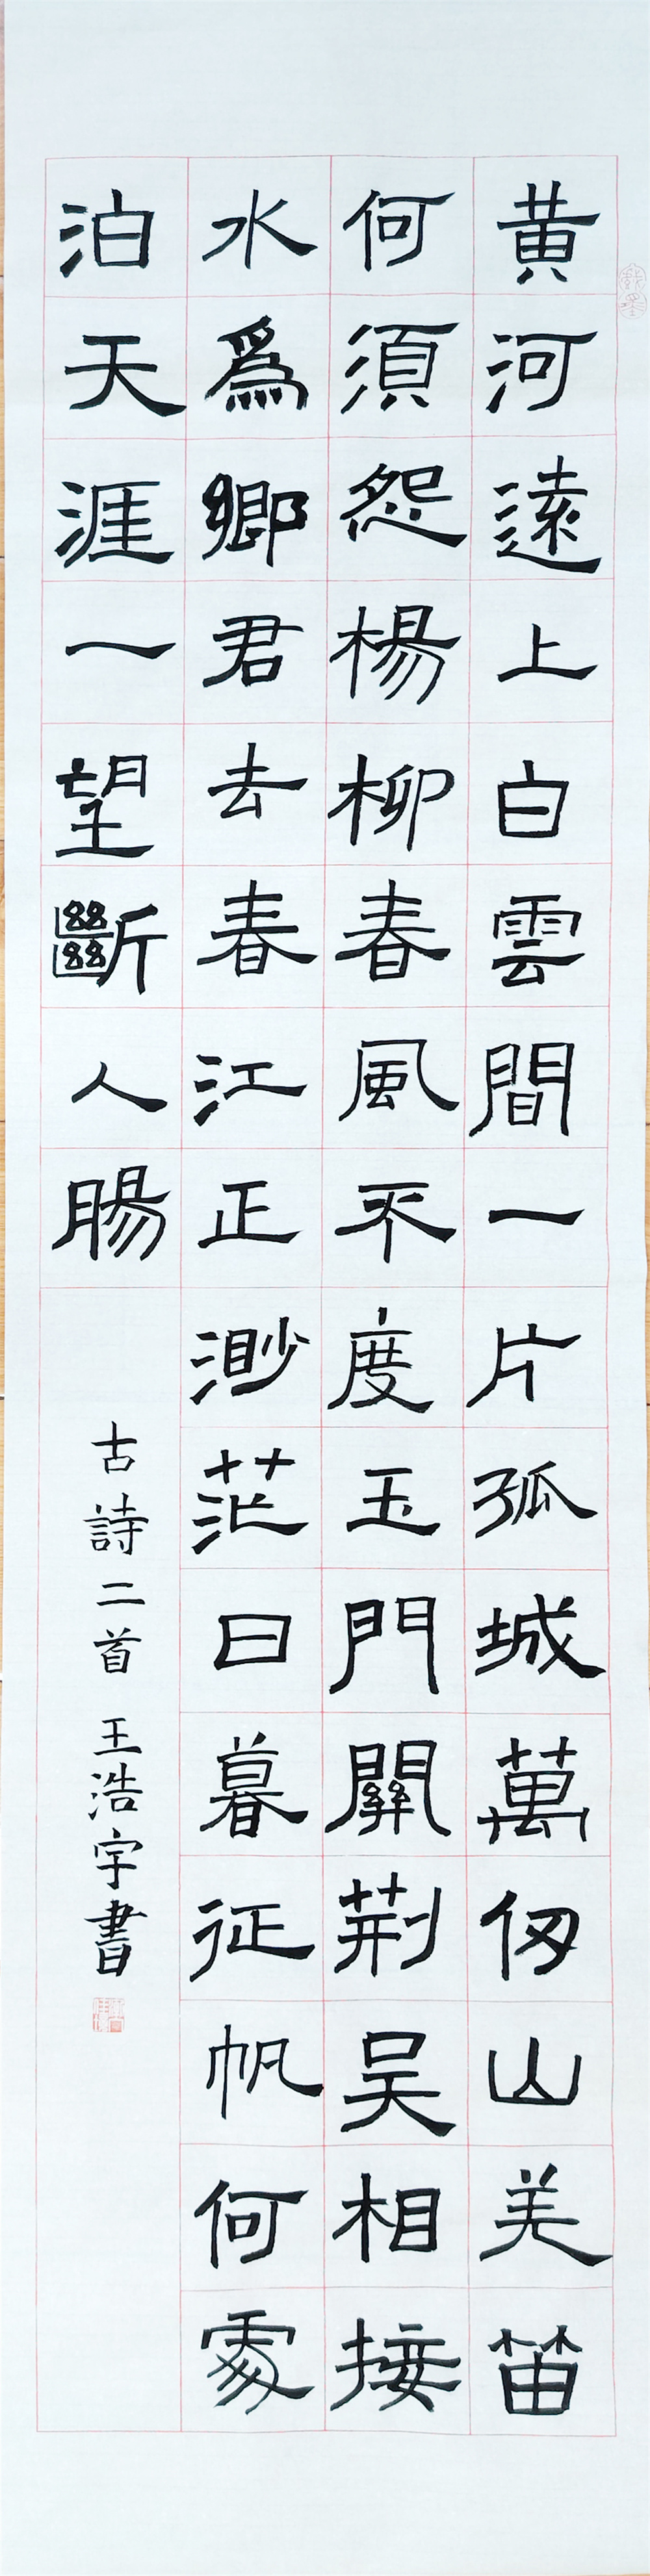 黄河遠上白雲間一片孤城萬仞山羌笛
何須怨楊柳春風不度玉門關荆吴相接
水爲鄉君去春江正渺茫日暮征帆何處
泊天涯一望斷人腸
古詩二首 王浩宇書